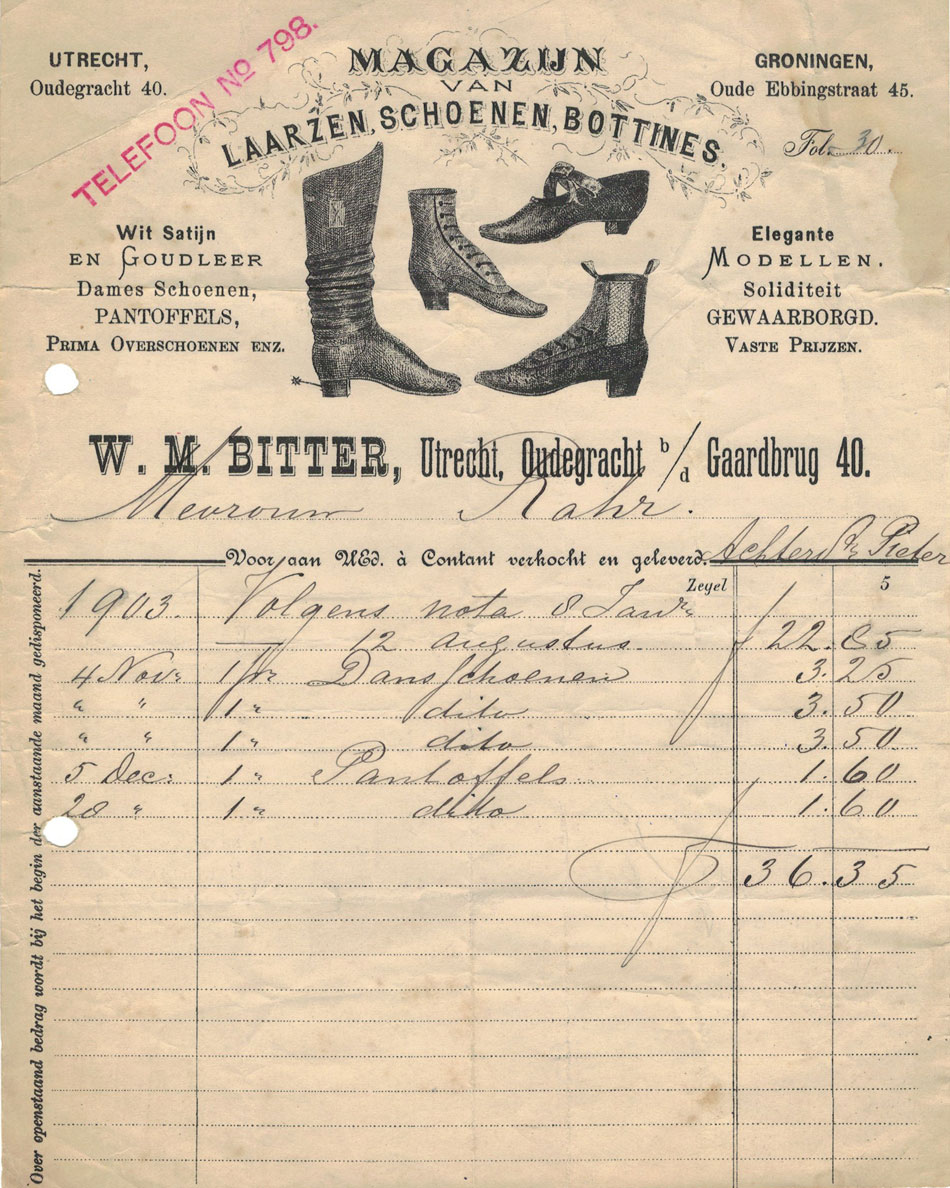 UTRECHT,
Oudegracht 40.
TELEFOON No 798.
MAGAZIJN
VAN
LAARZEN, SCHOENEN, BOTTINES.
GRONINGEN,
Oude Ebbingstraat 45.
Fol. 30.
Wit Satijn
EN GOUDLEER
Dames Schoenen,
PANTOFFELS,
PRIMA OVERSCHOENEN ENZ.
Elegante
MODELLEN.
Soliditeit
GEWAARBORGD.
VASTE PRIJZEN.
W. M. BITTER, Utrecht, Oudegracht b/d Gaardbrug 40.
Mevrouw Rahr.
Achter St Pieter
Voor aan UEd. à Contant verkocht en geleverd.
Zegel 5
1903. Volgens nota 8 Janri
— 12 augustus. ƒ 22.85
4 Nov: 1 pr Dansschoenen 3.25
" " 1 " dito 3.50
" " 1 " dito 3.50
5 Dec: 1 " Pantoffels 1.60
20 " 1 " dito 1.60
ƒ 36.35
Over openstaand bedrag wordt bij het begin der aanstaande maand gedisponeerd.